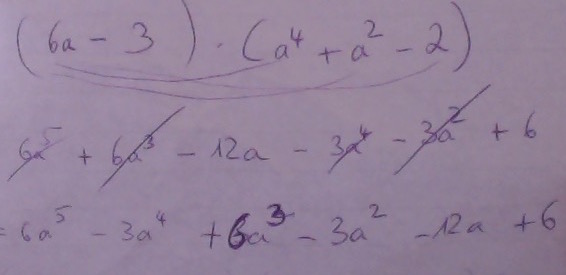 (6a - 3) · (a⁴ + a² - 2)
6a⁵ + 6a³ - 12a - 3a⁴ - 3a² + 6
= 6a⁵ - 3a⁴ + 6a³ - 3a² - 12a + 6